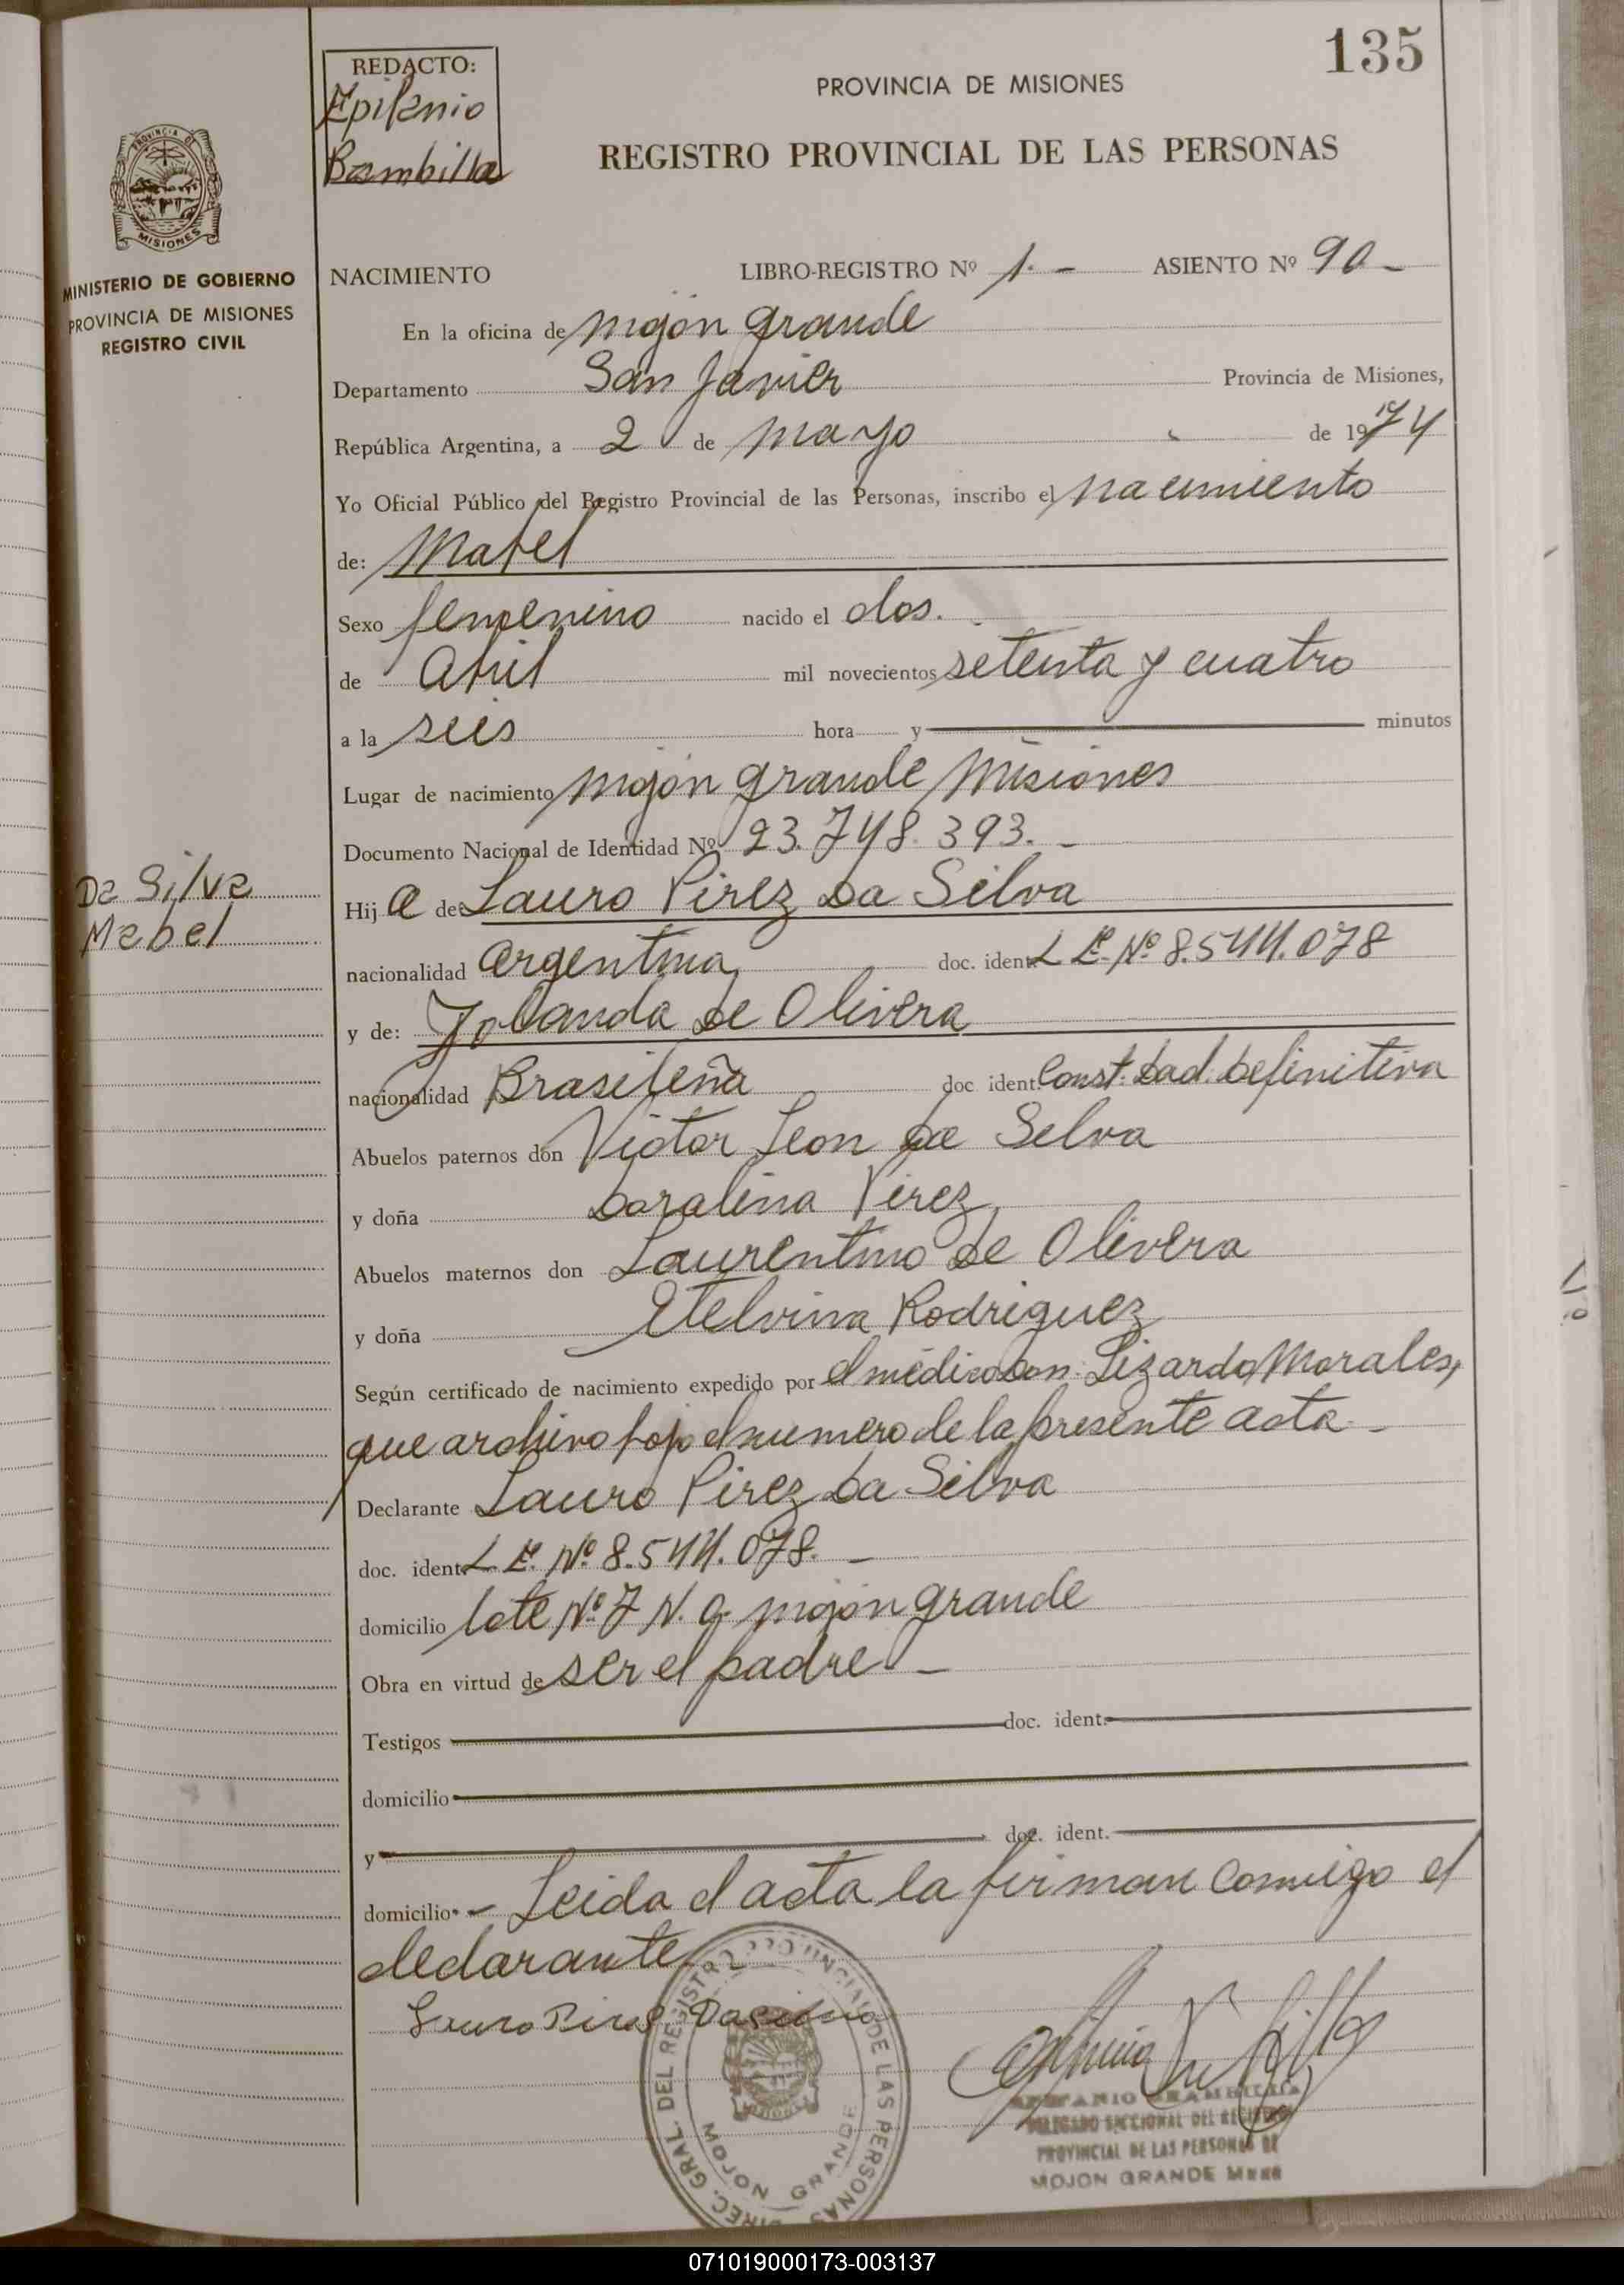 135
REDACTO:
Epifanio
Bambilla
PROVINCIA DE MISIONES
REGISTRO PROVINCIAL DE LAS PERSONAS
PROVINCIA DE
MISIONES
MINISTERIO DE GOBIERNO
PROVINCIA DE MISIONES
REGISTRO CIVIL
NACIMIENTO LIBRO-REGISTRO Nº 1.- ASIENTO Nº 90-
En la oficina de mojón grande
Departamento San Javier Provincia de Misiones,
República Argentina, a 2 de mayo de 1974
Yo Oficial Público del Registro Provincial de las Personas, inscribo el nacimiento
de: Mabel
Sexo femenino nacido el dos.
de abril mil novecientos setenta y cuatro
a la seis hora y minutos
Lugar de nacimiento mojón grande Misiones
Documento Nacional de Identidad Nº 23.748.393.-
Da Silva
Mabel
Hij a de Lauro Pirez Da Silva
nacionalidad argentina doc. ident. L E. Nº 8.544.078
y de: Yolanda De Olivera
nacionalidad Brasileña doc ident. Const. Dad. Definitiva
Abuelos paternos don Victor Leon Da Selva
y doña Doralina Pirez
Abuelos maternos don Laurentino De Olivera
y doña Etelvina Rodriguez
Según certificado de nacimiento expedido por el médico Don: Lizardo Morales,
que archivo bajo el numero de la presente acta-
Declarante Lauro Pirez Da Silva
doc. ident. L E. Nº 8.544.078.-
domicilio lote Nº 7 N. g. mojón grande
Obra en virtud de ser el padre-
Testigos doc. ident.
domicilio
y doc. ident.
domicilio - Leida el acta la firman conmigo el
declarante
Lauro Pires Dasilva
DIREC. GRAL. DEL REGISTRO PROVINCIAL DE LAS PERSONAS
MOJON GRANDE
EPIFANIO BRAMBILLA
DELEGADO SECCIONAL DEL REGISTRO
PROVINCIAL DE LAS PERSONAS DE
MOJON GRANDE
071019000173-003137